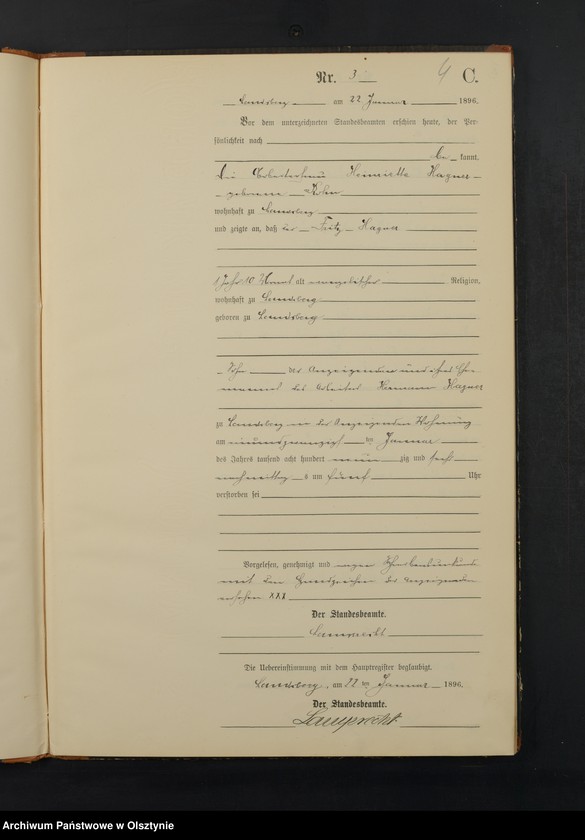 Nr. 3 4 C.
Landsberg am 22 Januar 1896.
Vor dem unterzeichneten Standesbeamten erschien heute, der Per-
sönlichkeit nach
be kannt.
Die Arbeiterfrau Henriette Hagner
geborene
wohnhaft zu Landsberg
und zeigte an, daß der Fritz Hagner
1 Jahr 10 Monat alt evangelischer Religion,
wohnhaft zu Landsberg
geboren zu Landsberg
Sohn der Anzeigenden und ihres Ehe-
mannes des Arbeiter Hermann Hagner
zu Landsberg in der Anzeigenden Wohnung
am einundzwanzigsten Januar
des Jahres tausend acht hundert neun zig und sechs
nachmittag s um fünf Uhr
verstorben sei
Vorgelesen, genehmigt und wegen Schreibensunkunde
mit den Handzeichen der Anzeigenden
versehen XXX
Der Standesbeamte.
Lamprecht
Die Uebereinstimmung mit dem Hauptregister beglaubigt.
Landsberg, am 22 ten Januar 1896.
Der Standesbeamte.
Lamprecht
Archiwum Państwowe w Olsztynie